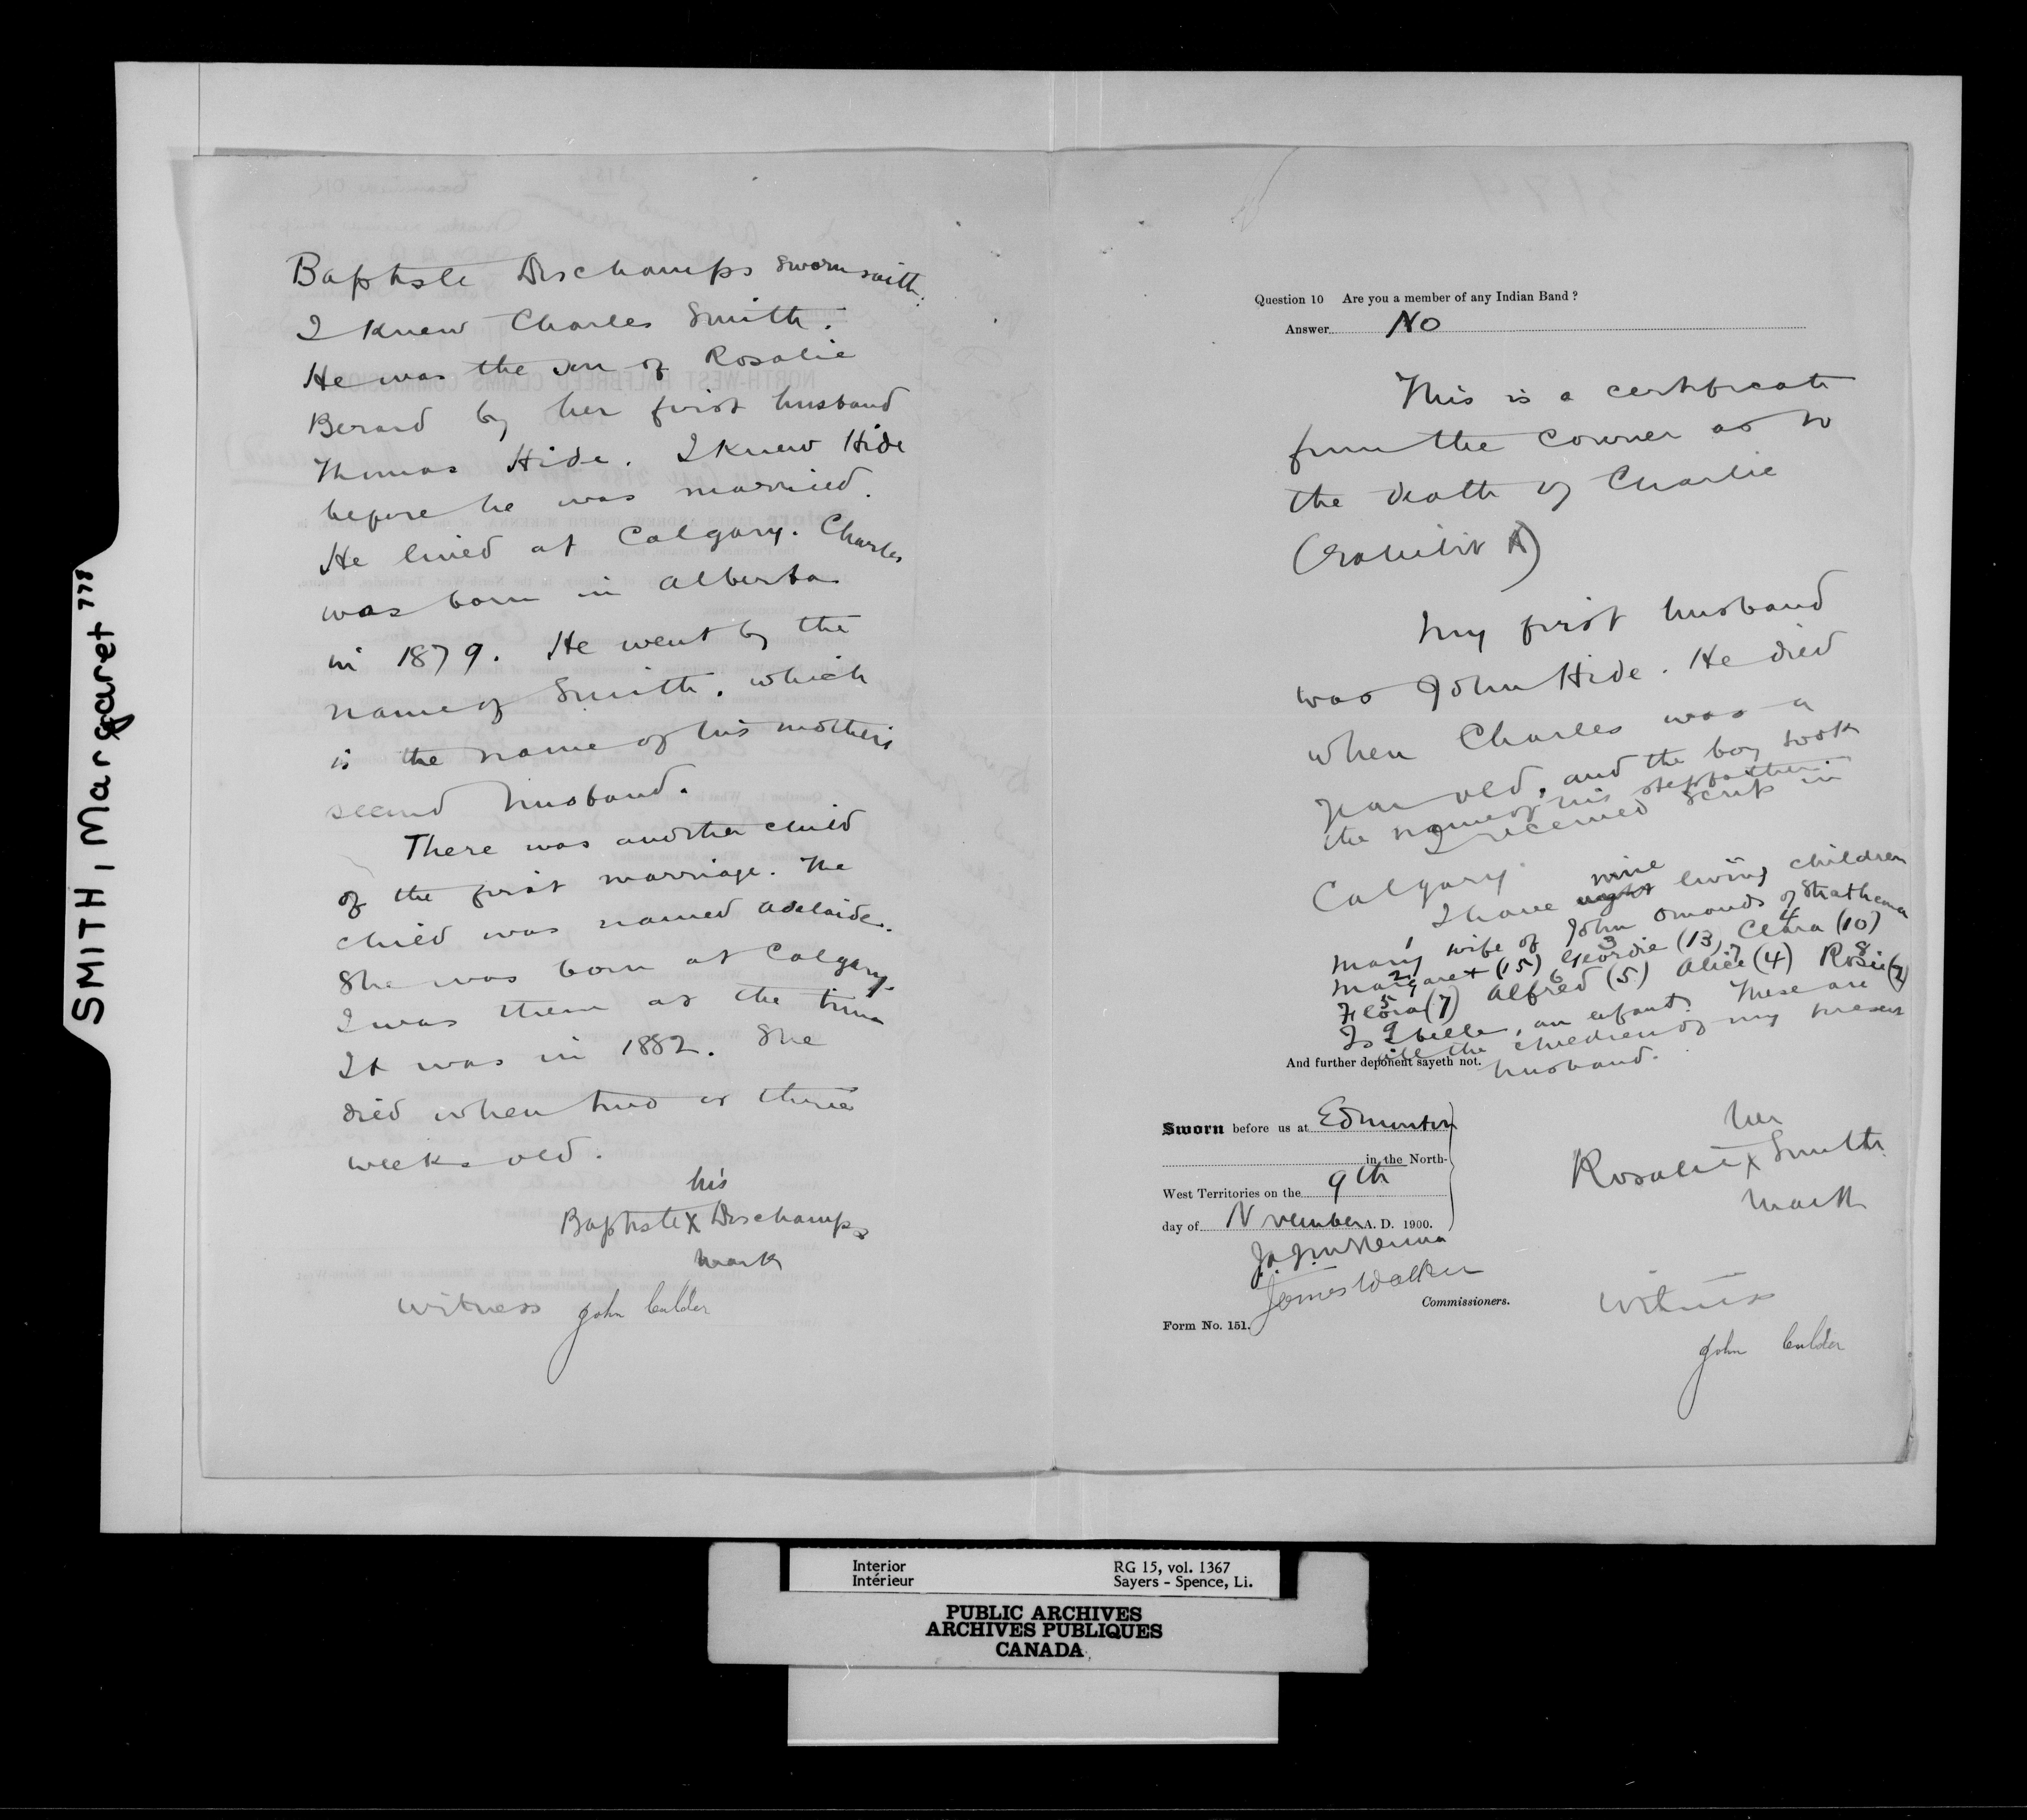 SMITH, Margaret 778
Baptiste Deschamps sworn saith:
I knew Charles Smith.
He was the son of Rosalie
Berard by her first husband
Thomas Hide. I knew Hide
before he was married.
He lived at Calgary. Charles
was born in Alberta
in 1879. He went by the
name of Smith, which
is the name of his mother's
second husband.
There was another child
of the first marriage. The
child was named Adelaide.
She was born at Calgary.
I was there at the time
It was in 1882. She
died when two or three
weeks old.
his
Baptiste X Deschamps
mark
Witness John Calder
Question 10 Are you a member of any Indian Band?
Answer No
This is a certificate
from the Coroner as to
the death of Charlie
(Exhibit A)
My first husband
was John Hide. He died
when Charles was a
year old, and the boy took
the name of his stepfather.
I received scrip in
Calgary
nine
I have eight living children
1
Mary wife of John Omands of Strathcona
2 3 4
Margaret (15) Geordie (13), Clara (10)
5 6 7 8
Flora (7) Alfred (5) Alice (4) Rosie (2)
9
Isabella, an infant. These are
all the children of my present
husband.
And further deponent sayeth not.
Sworn before us at Edmonton
in the North-
West Territories on the 9th
day of November A. D. 1900.
J. A. J. McKenna
James Walker
Commissioners.
Form No. 151.
her
Rosalie X Smith
mark
Witness
John Calder
Interior
Intérieur
RG 15, vol. 1367
Sayers - Spence, Li.
PUBLIC ARCHIVES
ARCHIVES PUBLIQUES
CANADA